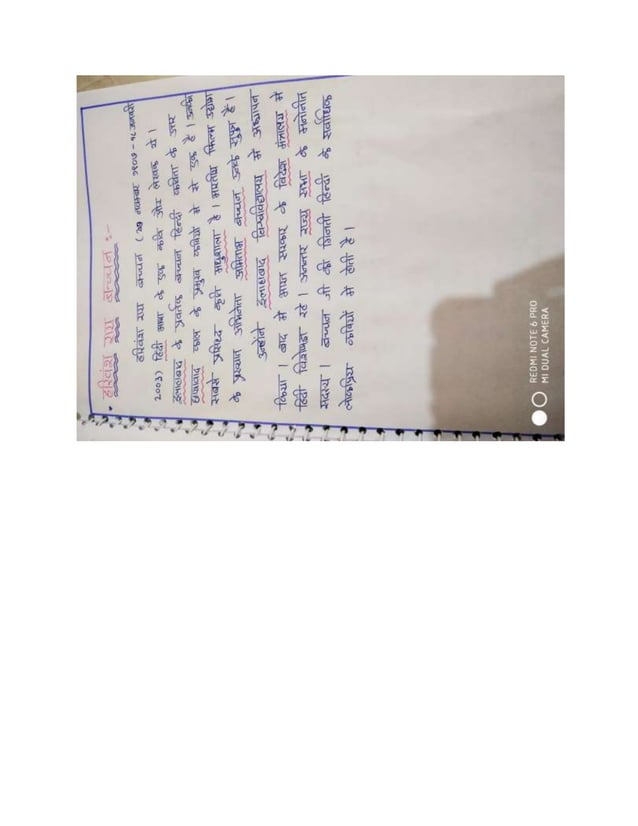 • हरिवंश राय बच्चन :-
हरिवंश राय बच्चन ( 27 नवम्बर १९०७ - १८ जनवरी
2003) हिंदी भाषा के एक कवि और लेखक थे।
इलाहाबाद के प्रवर्तक बच्चन हिन्दी कविता के उत्तर
छायावाद काल के प्रमुख कवियों मे से एक है। उनकी
सबसे प्रसिध्द कृति मधुशाला है। भारतीय फिल्म उद्योग
के प्रख्यात अभिनेता अमिताभ बच्चन उनके सुपुत्र है।
उन्होंने इलाहाबाद विश्वविद्यालय में अध्यापन
किया। बाद में भारत सरकार के विदेश मंत्रालय में
हिंदी विशेषज्ञ रहे। अनन्तर राज्य सभा के मनोनीत
सदस्य। बच्चन जी की गिनती हिन्दी के सर्वाधिक
लोकप्रिय कवियों में होती है।
REDMI NOTE 6 PRO
MI DUAL CAMERA